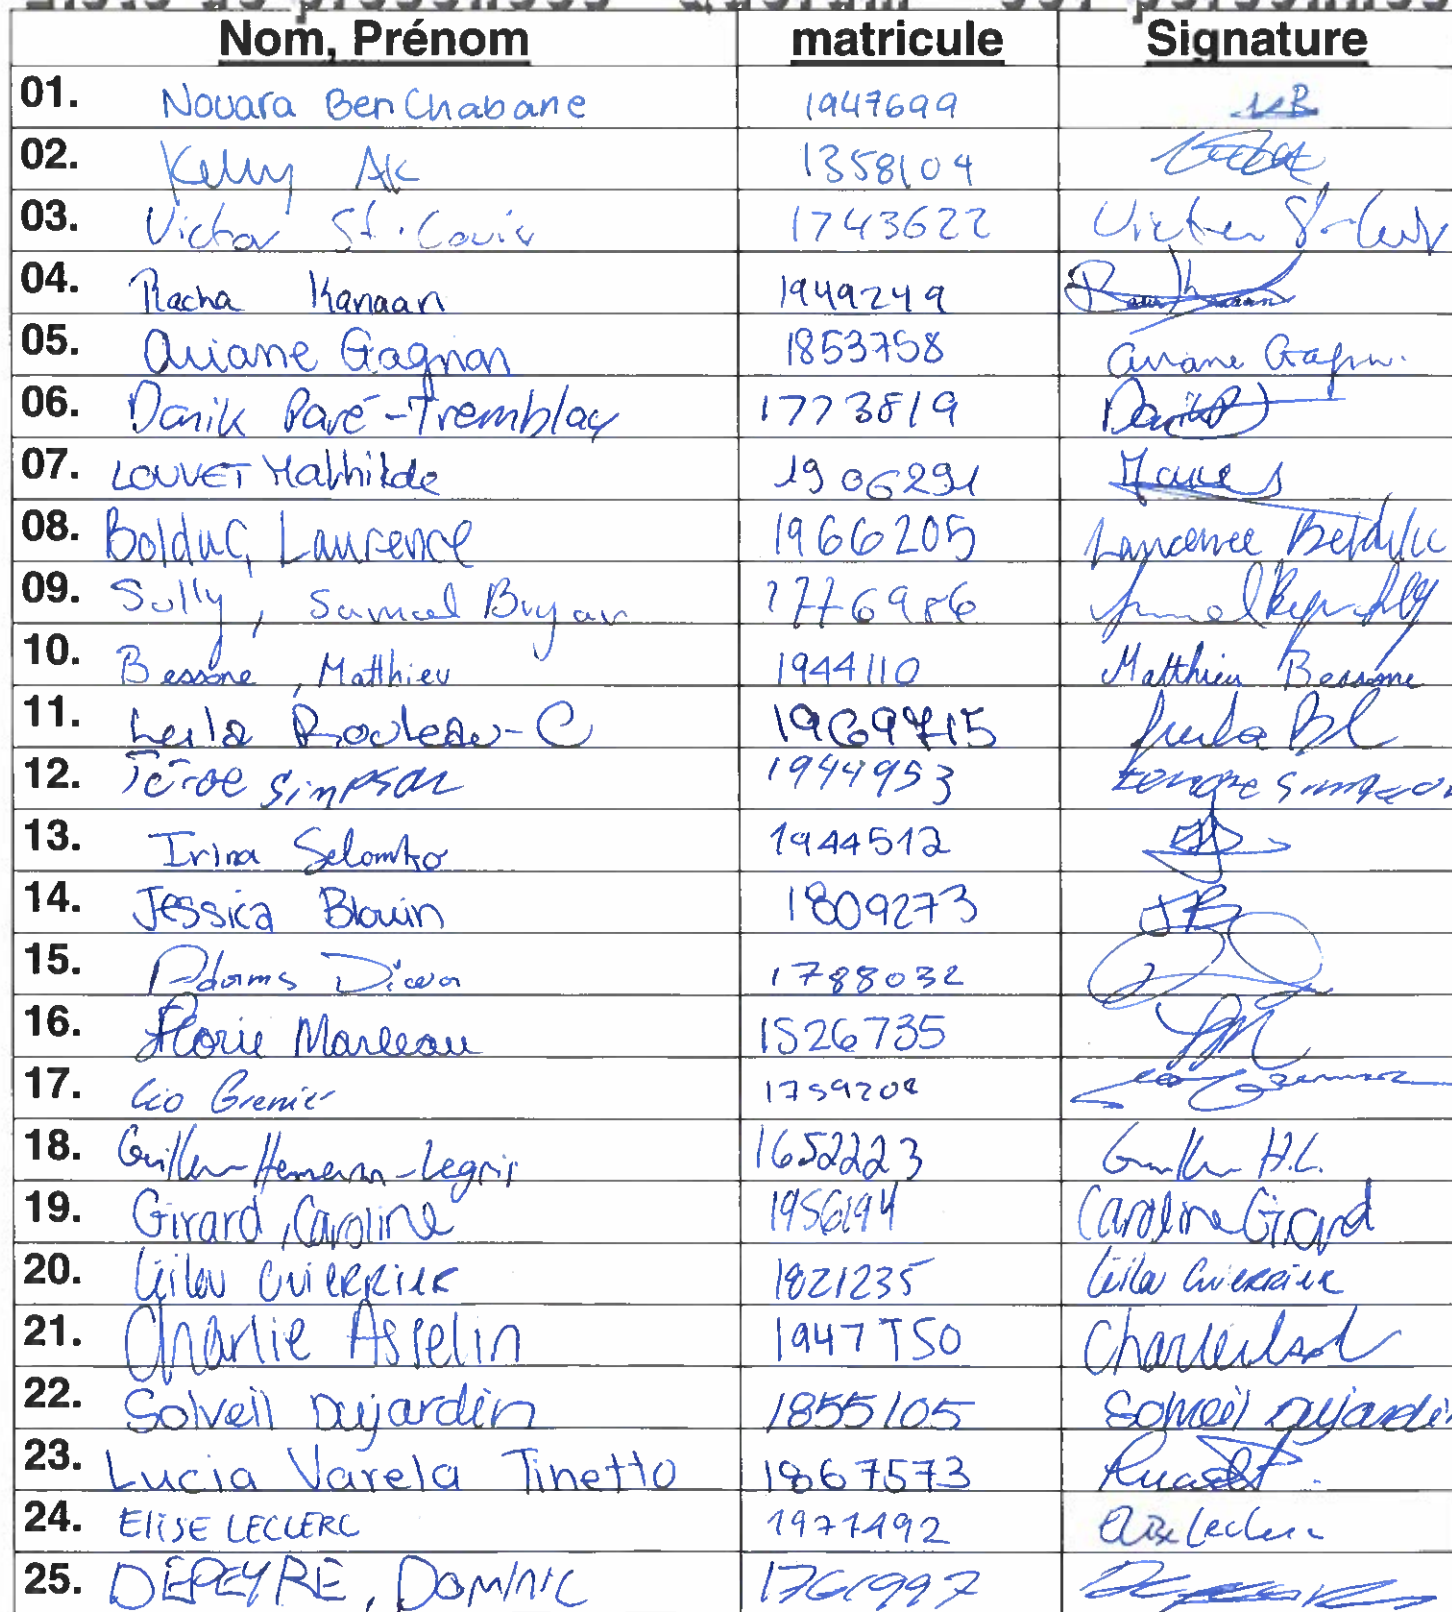 Liste de présences quorum 
Nom, Prénom matricule Signature
01. Nouara BenChabane 1947699 NB
02. Kelly AK 1358104
03. Victor St-Louis 1743622 Victor St-Louis
04. Racha Kanaan 1949249
05. Ariane Gagnon 1853758 Ariane Gagnon
06. Danik Paré-Tremblay 1773819
07. LOUVET Mathilde 1906291
08. Bolduc, Laurence 1966205 Laurence Bolduc
09. Sully, Samuel Bryan 1776986
10. Bessone, Matthieu 1944110 Matthieu Bessone
11. Leila Rouleau-C 1969715
12. Simpson 1944953 Simpson
13. Irina Selomko 1944512
14. Jessica Blouin 1809273 JB
15. Adams Diwa 1788032
16. Florie Marleau 1526735 FM
17. Léo Grenier 1759208 Léo Grenier
18. Hemann-Legris 1652223 H.L.
19. Girard, Caroline 1956194 Caroline Girard
20. 1821235
21. Charlie Asselin 1947750
22. Solveil Dujardin 1855105 Solveil Dujardin
23. Lucia Varela Tinetto 1867573
24. ELISE LECLERC 1971492 Elise Leclerc
25. DEPEYRE, DOMINIC 1761997